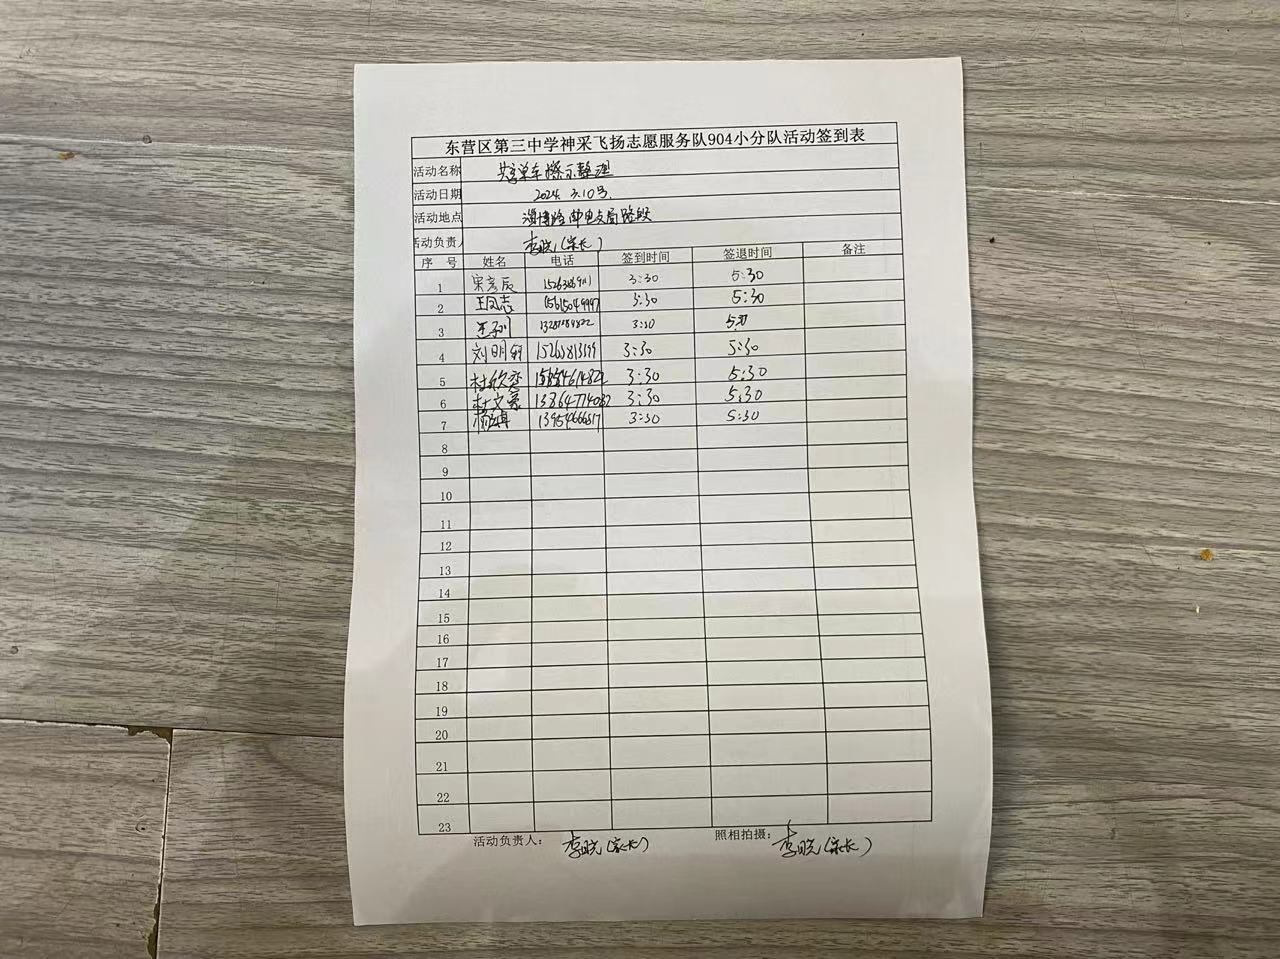 东营区第三中学神采飞扬志愿服务队904小分队活动签到表
活动名称 共享单车擦示整理
活动日期 2024. 3.10号.
活动地点 淄博路邮电局路段
活动负责人 李晓(家长)
序 号 姓名 电话 签到时间 签退时间 备注
1 宋彦辰 3:30 5:30
2 王同志 15615049997 3:30 5:30
3 3:30 5:30
4 刘明轩 3:30 5:30
5 杜欣恋 3:30 5:30
6 杜文豪 3:30 5:30
7 3:30 5:30
8
9
10
11
12
13
14
15
16
17
18
19
20
21
22
23
活动负责人： 李晓(家长) 照相拍摄： 李晓(家长)